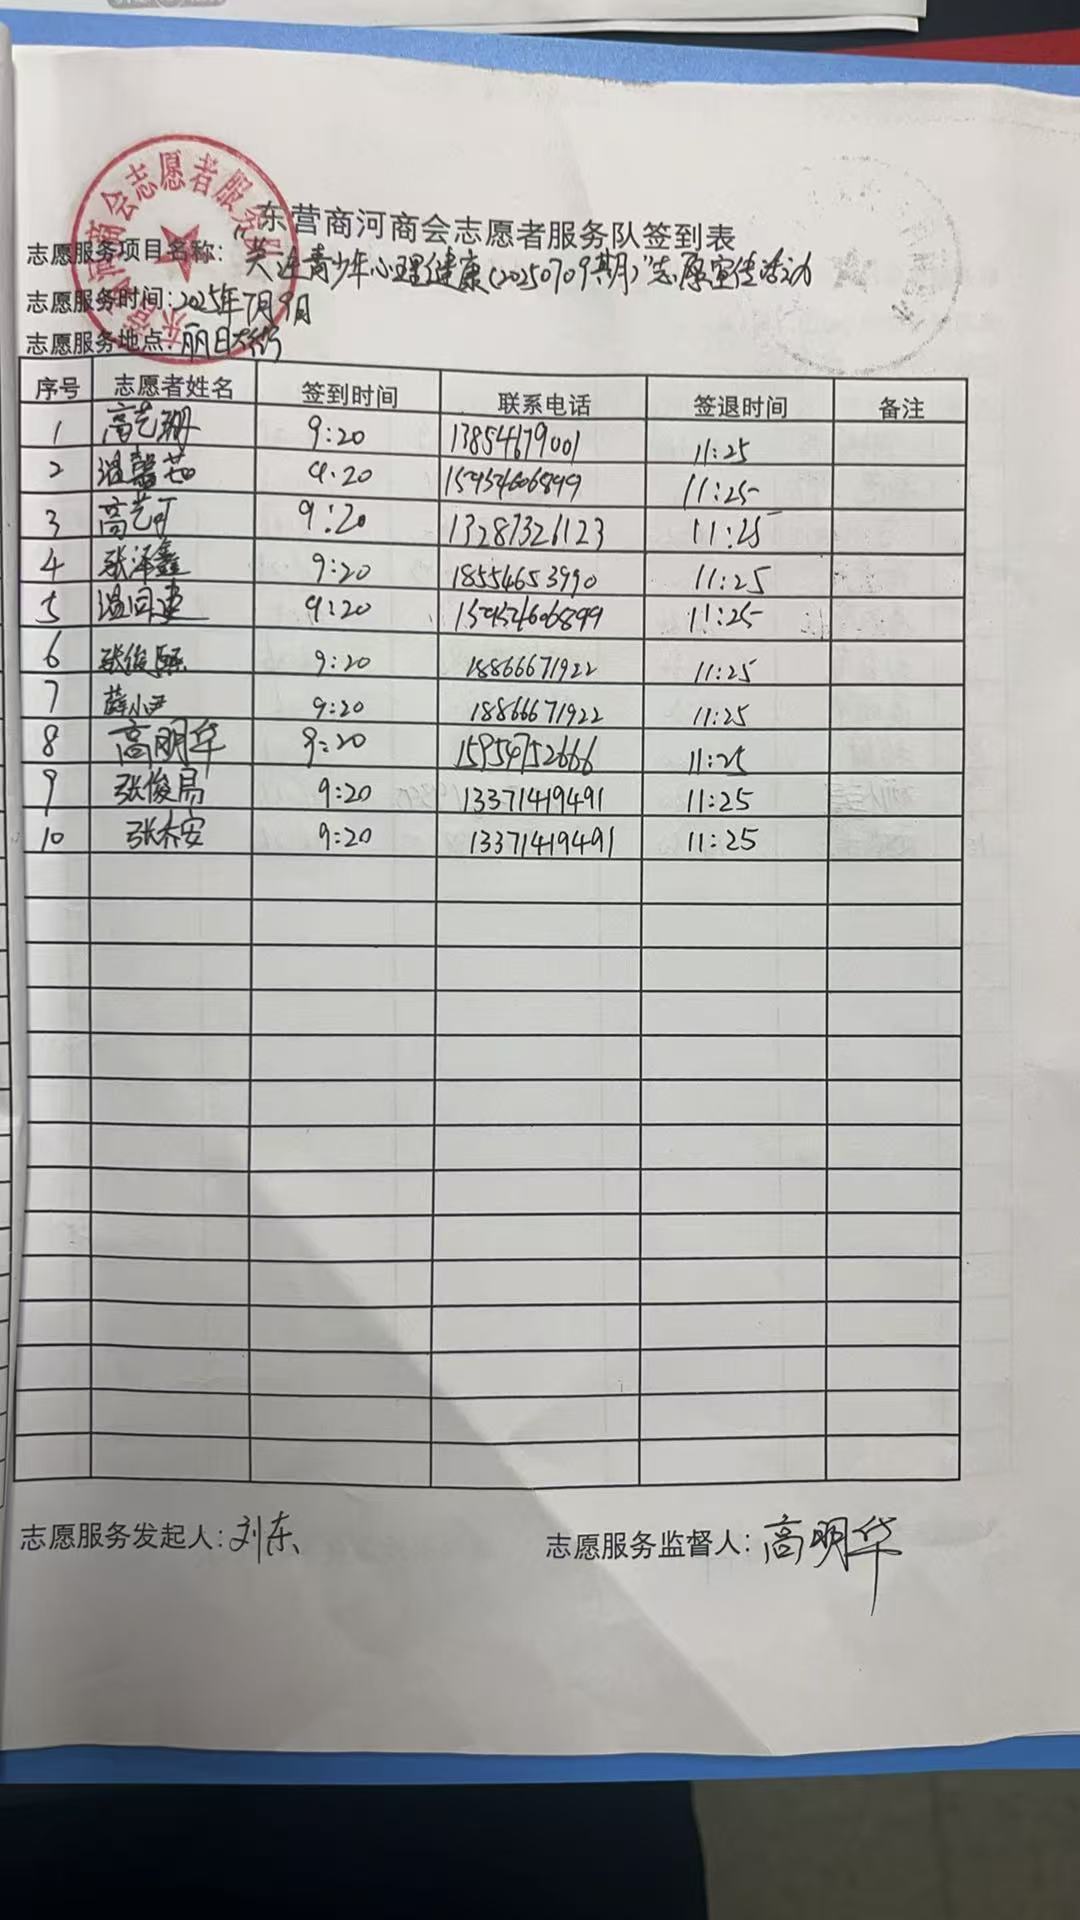 东营商河商会志愿者服务队签到表
志愿服务项目名称："关注青少年心理健康(20250709期)"志愿宣传活动
志愿服务时间:2025年7月9日
志愿服务地点:丽日大药
序号 志愿者姓名 签到时间 联系电话 签退时间 备注
1 高艺珊 9:20 13854679001 11:25
2 温馨茹 9:20 15954606899 11:25
3 高艺可 9:20 13287326123 11:25
4 张泽鑫 9:20 18554653990 11:25
5 温同建 9:20 15954606899 11:25
6 张俊熙 9:20 18866671922 11:25
7 薛小尹 9:20 18866671922 11:25
8 高明华 9:20 15954752666 11:25
9 张俊易 9:20 13371419491 11:25
10 张杰安 9:20 13371419491 11:25
志愿服务发起人:刘东
志愿服务监督人:高明华